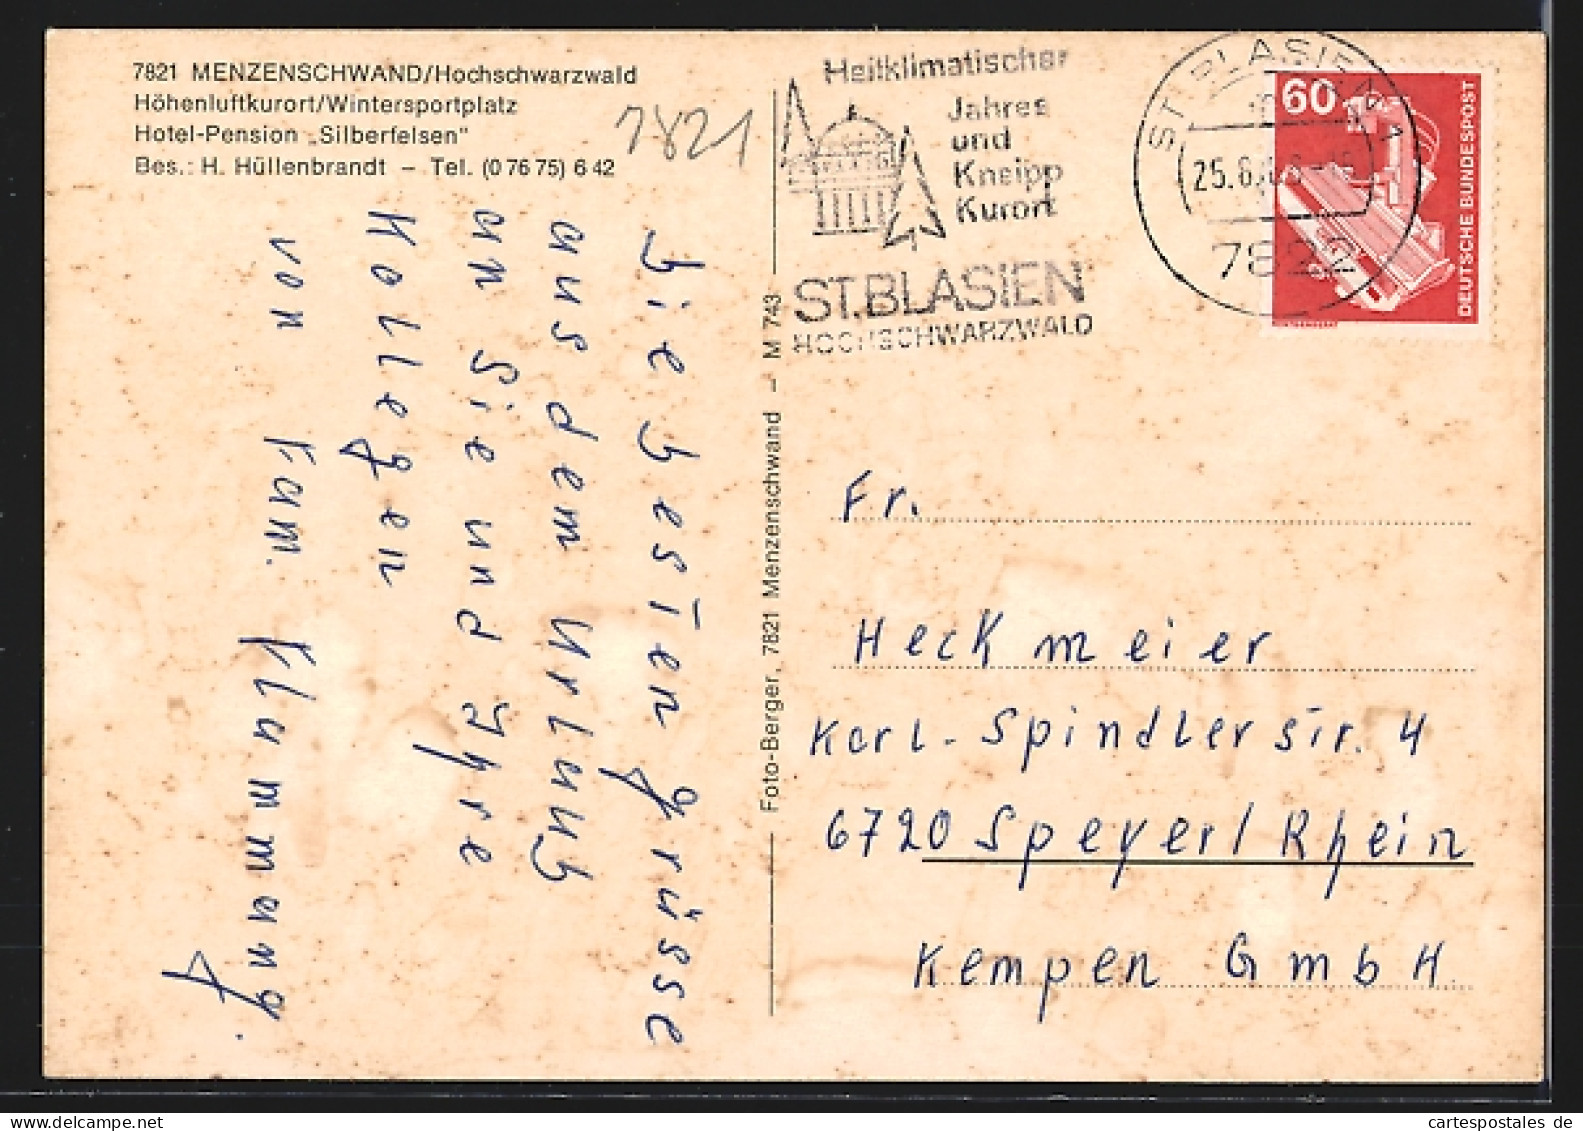 7821 MENZENSCHWAND/Hochschwarzwald
Höhenluftkurort/Wintersportplatz
Hotel-Pension „Silberfelsen"
Bes.: H. Hüllenbrandt – Tel. (0 76 75) 6 42
7821
Die besten grüsse
aus dem Urlaub
an Sie und Ihre
Kollegen
von Fam. Klammang.
Foto-Berger, 7821 Menzenschwand – M 743
Heilklimatischer
Jahres
und
Kneipp
Kurort
ST.BLASIEN
HOCHSCHWARZWALD
ST. BLASIEN 1
25.6.
7822
60
DEUTSCHE BUNDESPOST
Fr.
Heckmeier
Karl-Spindlerstr. 4
6720 Speyer/Rhein
Kempen GmbH
cartespostales de